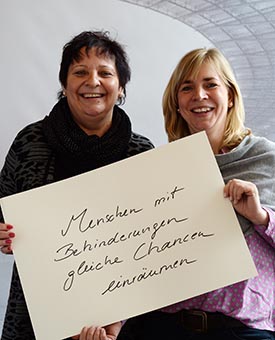 Menschen mit
Behinderungen
gleiche Chancen
einräumen